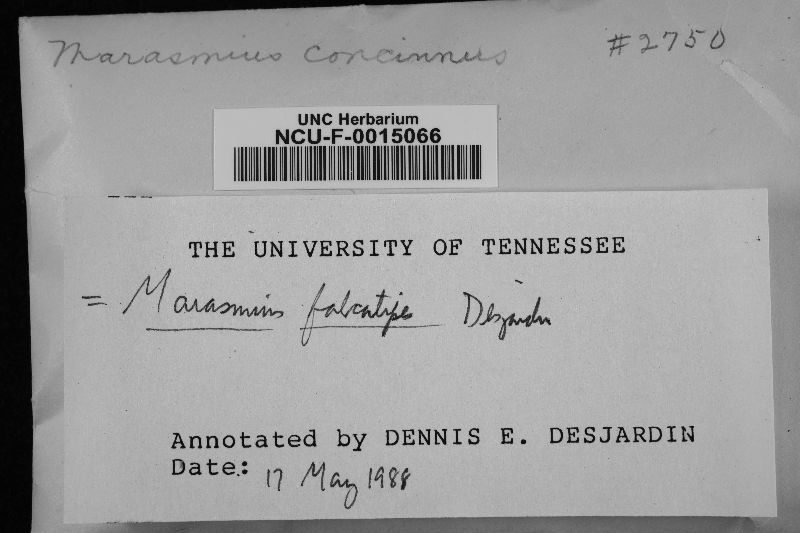 Marasmius concinnus #2750
UNC Herbarium
NCU-F-0015066
THE UNIVERSITY OF TENNESSEE
= Marasmius falcatipes Desjardin
Annotated by DENNIS E. DESJARDIN
Date: 17 May 1988